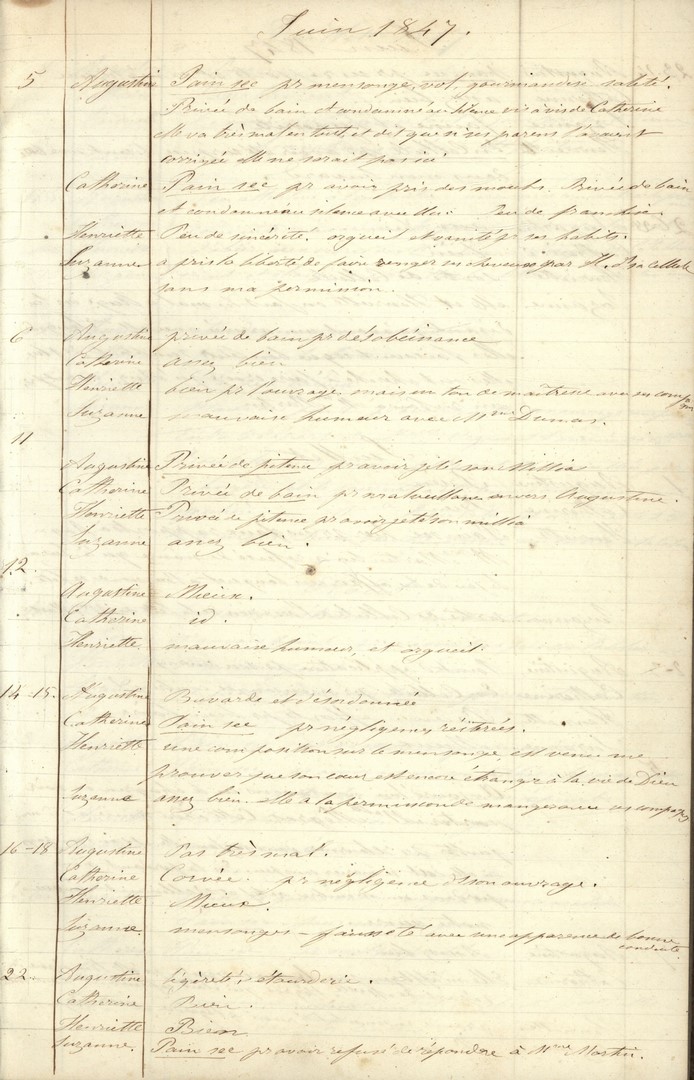 Juin 1847.
5 Augustine Pain sec pr mensonge, vol, gourmandise, saleté.
Privée de bain et condamnée au silence vis à vis de Catherine
Elle va très mal en tout, et dit que si ses parens l'avaient
corrigée elle ne serait pas ici
Catherine Pain sec pr avoir pris des Privée de bain
et condamnée au silence avec Peu de franchise
Henriette Peu de sincérité. orgueil et vanité pr ses habits.
Suzanne a pris la liberté de faire ranger ses cheveux par H. ds sa cellule
sans ma permission.
6 Augustine privée de bain pr désobéissance
Catherine assez bien
Henriette bien pr l'ouvrage, mais un ton de maitresse avec ses comp
Suzanne mauvaise humeur avec Mme Dumas.
11
Augustine Privée de pitence pr avoir jeté son
Catherine Privée de bain pr malveillance envers Augustine.
Henriette Privée de pitence pr avoir jeté son
Suzanne assez bien.
12.
Augustine Mieux.
Catherine id.
Henriette mauvaise humeur, et orgueil.
14-15. Augustine Bavarde et désordonnée
Catherine Pain sec pr négligences réitérées.
Henriette une composition sur le mensonge, est venue me
prouver que son cœur est encore étranger à la vie de Dieu
Suzanne assez bien. Elle a la permission de manger avec ses compag
16-18 Augustine Pas très mal.
Catherine Corvée. pr négligence ds son ouvrage.
Henriette Mieux.
Suzanne mensonges - fausseté avec une apparence de bonne
conduite.
22. Augustine légèreté, étourderie.
Catherine Bien.
Henriette Bien
Suzanne. Pain sec pr avoir refusé de répondre à Mme Martin.